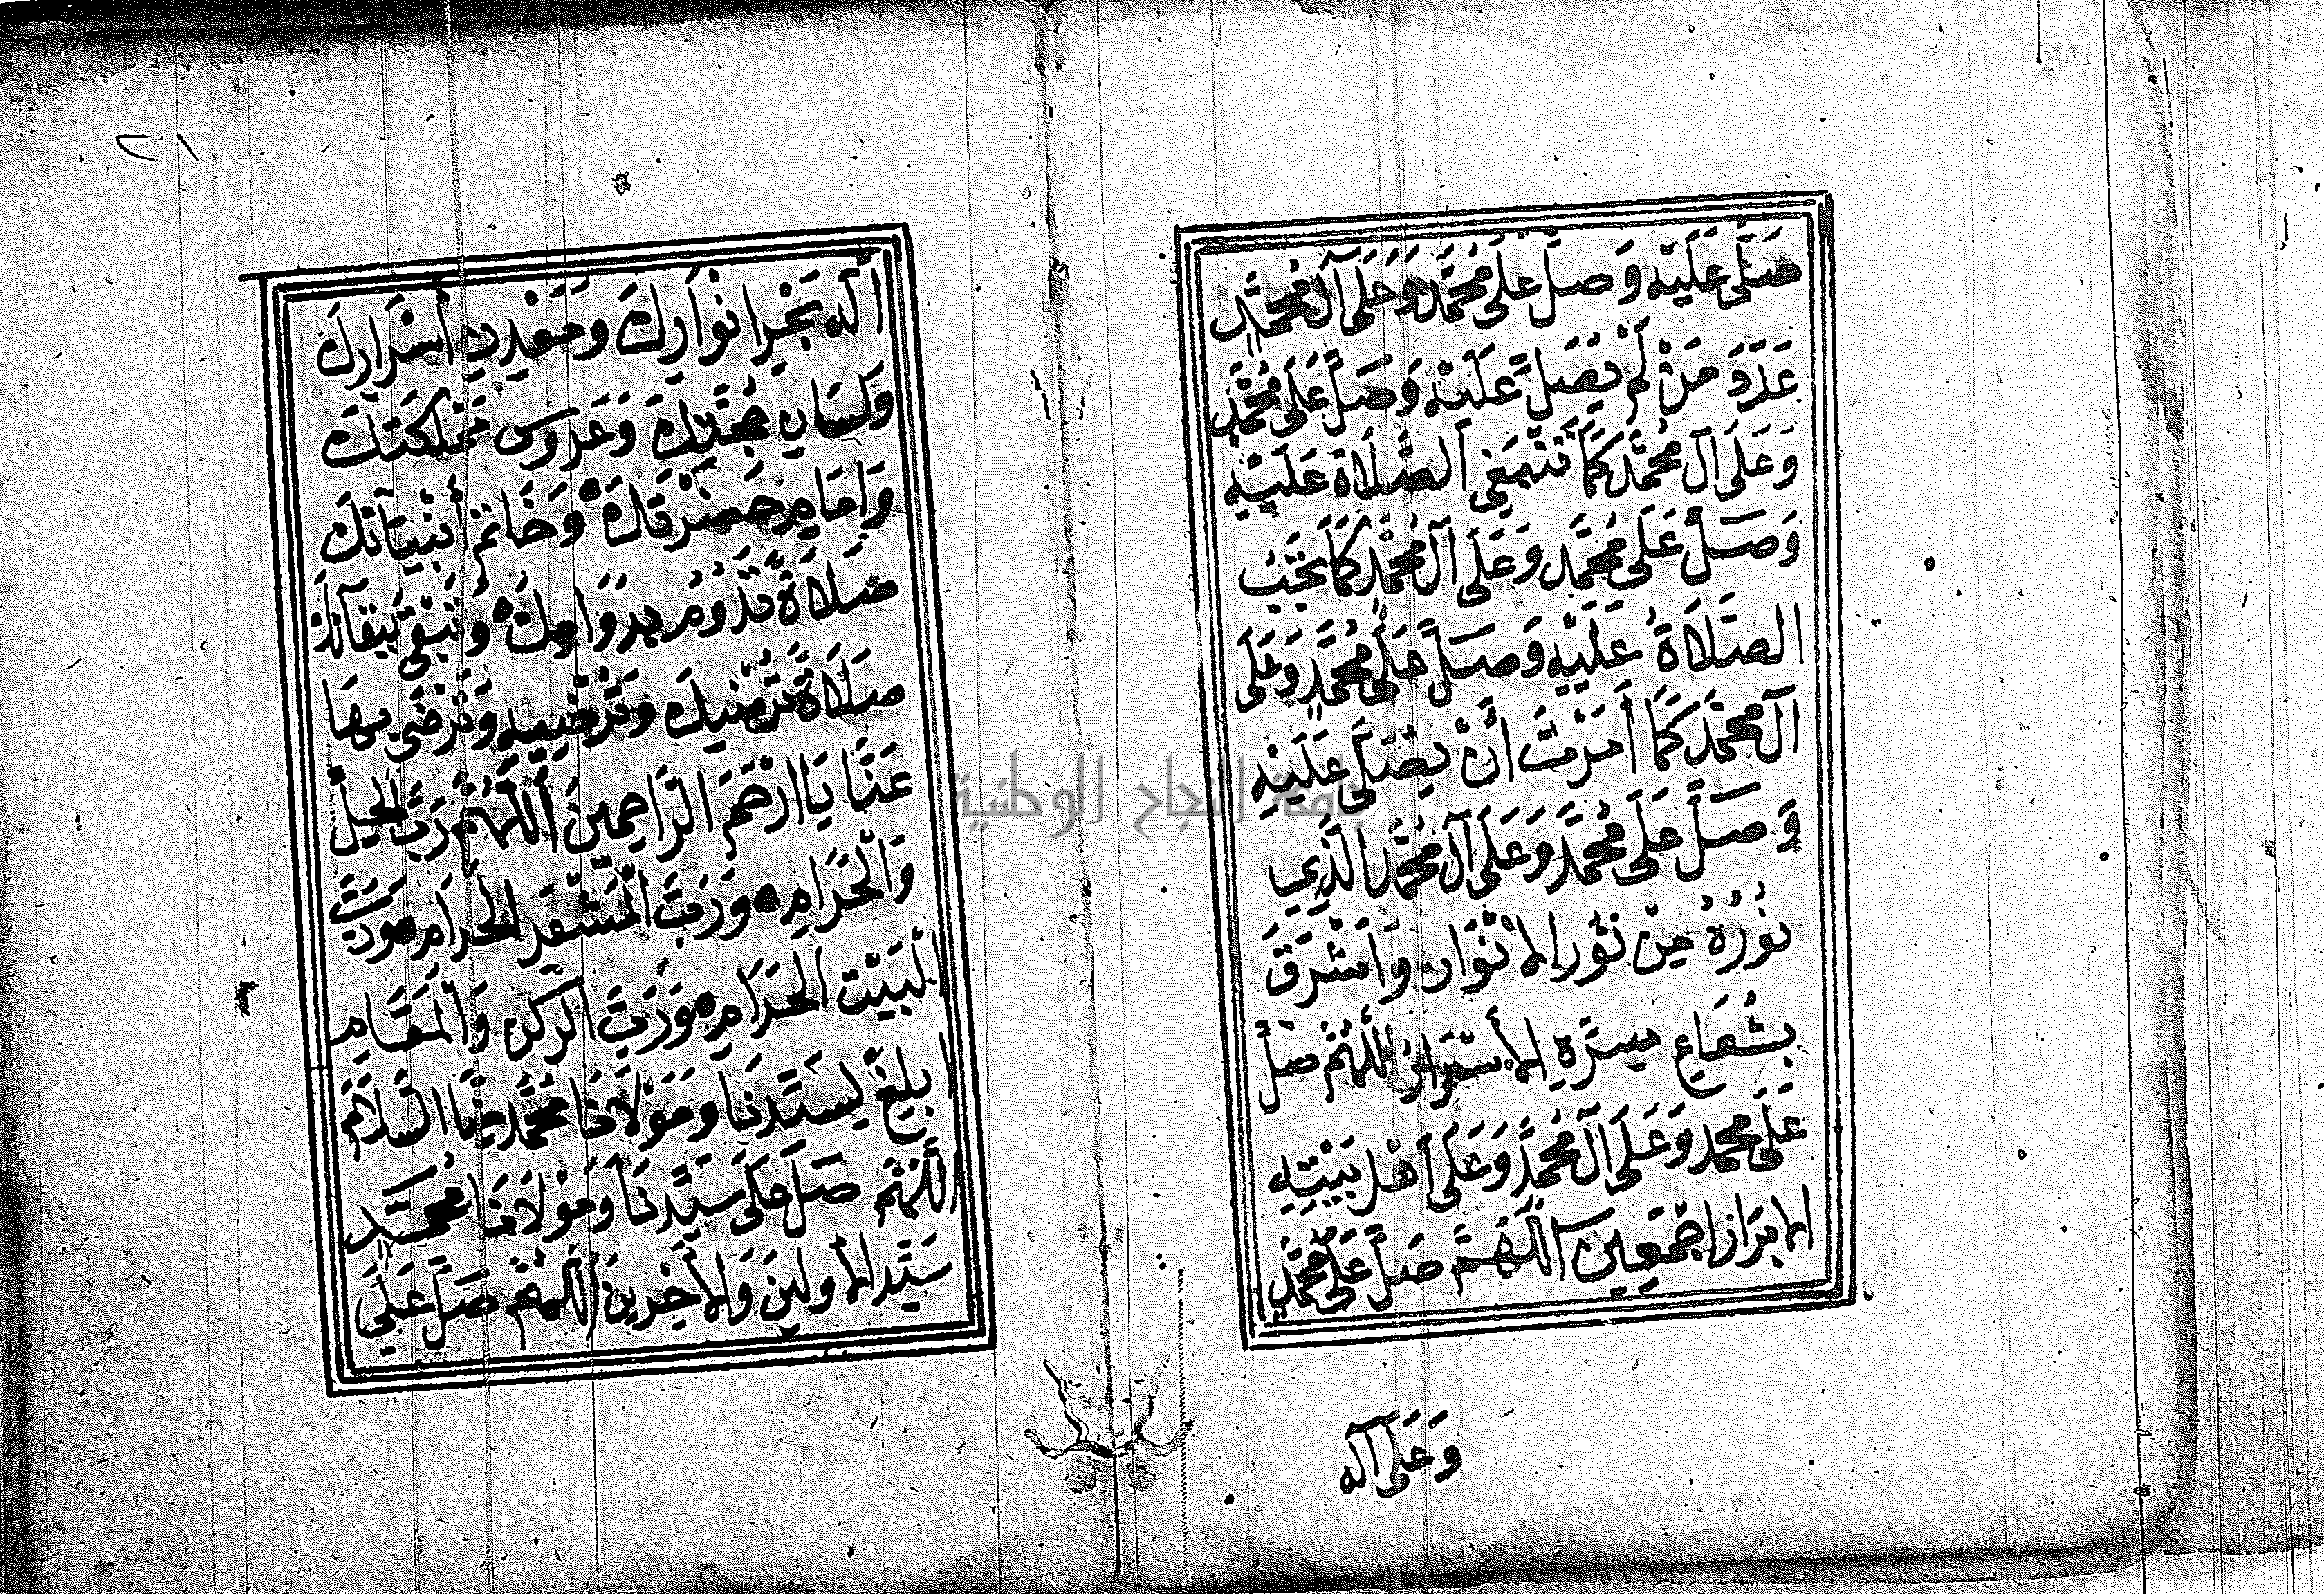 صَلَّى عَلَيْهِ وَصَلِّ عَلَى مُحَمَّدٍ وَعَلَى آلِ مُحَمَّدٍ
عَدَدَ مَنْ لَمْ يُصَلِّ عَلَيْهِ وَصَلِّ عَلَى مُحَمَّدٍ
وَعَلَى آلِ مُحَمَّدٍ كَمَا تَنْبَغِي الصَّلَاةُ عَلَيْهِ
وَصَلِّ عَلَى مُحَمَّدٍ وَعَلَى آلِ مُحَمَّدٍ كَمَا تَجِبُ
الصَّلَاةُ عَلَيْهِ وَصَلِّ عَلَى مُحَمَّدٍ وَعَلَى
آلِ مُحَمَّدٍ كَمَا أَمَرْتَ أَنْ يُصَلَّى عَلَيْهِ
وَصَلِّ عَلَى مُحَمَّدٍ وَعَلَى آلِ مُحَمَّدٍ الَّذِي
نُورُهُ مِنْ نُورِ الْأَنْوَارِ وَأَشْرَقَ
بِشُعَاعِ سِرِّهِ الْأَسْرَارُ اللَّهُمَّ صَلِّ
عَلَى مُحَمَّدٍ وَعَلَى آلِ مُحَمَّدٍ وَعَلَى أَهْلِ بَيْتِهِ
الْأَبْرَارِ أَجْمَعِينَ اللَّهُمَّ صَلِّ عَلَى مُحَمَّدٍ
وَعَلَى آلِهِ
٢١
آلِهِ بَحْرِ أَنْوَارِكَ وَمَعْدِنِ أَسْرَارِكَ
وَلِسَانِ حُجَّتِكَ وَعَرُوسِ مَمْلَكَتِكَ
وَإِمَامِ حَضْرَتِكَ وَخَاتَمِ أَنْبِيَائِكَ
صَلَاةً تَدُومُ بِدَوَامِكَ وَتَبْقَى بِبَقَائِكَ
صَلَاةً تُرْضِيكَ وَتُرْضِيهِ وَتَرْضَى بِهَا
عَنَّا يَا أَرْحَمَ الرَّاحِمِينَ اللَّهُمَّ رَبَّ الْحِلِّ
وَالْحَرَامِ وَرَبَّ الْمَشْعَرِ الْحَرَامِ وَرَبَّ
الْبَيْتِ الْحَرَامِ وَرَبَّ الرُّكْنِ وَالْمَقَامِ
أَبْلِغْ لِسَيِّدِنَا وَمَوْلَانَا مُحَمَّدٍ مِنَّا السَّلَامَ
اللَّهُمَّ صَلِّ عَلَى سَيِّدِنَا وَمَوْلَانَا مُحَمَّدٍ
سَيِّدِ الْأَوَّلِينَ وَالْآخِرِينَ اللَّهُمَّ صَلِّ عَلَى
النجاح الوطنية